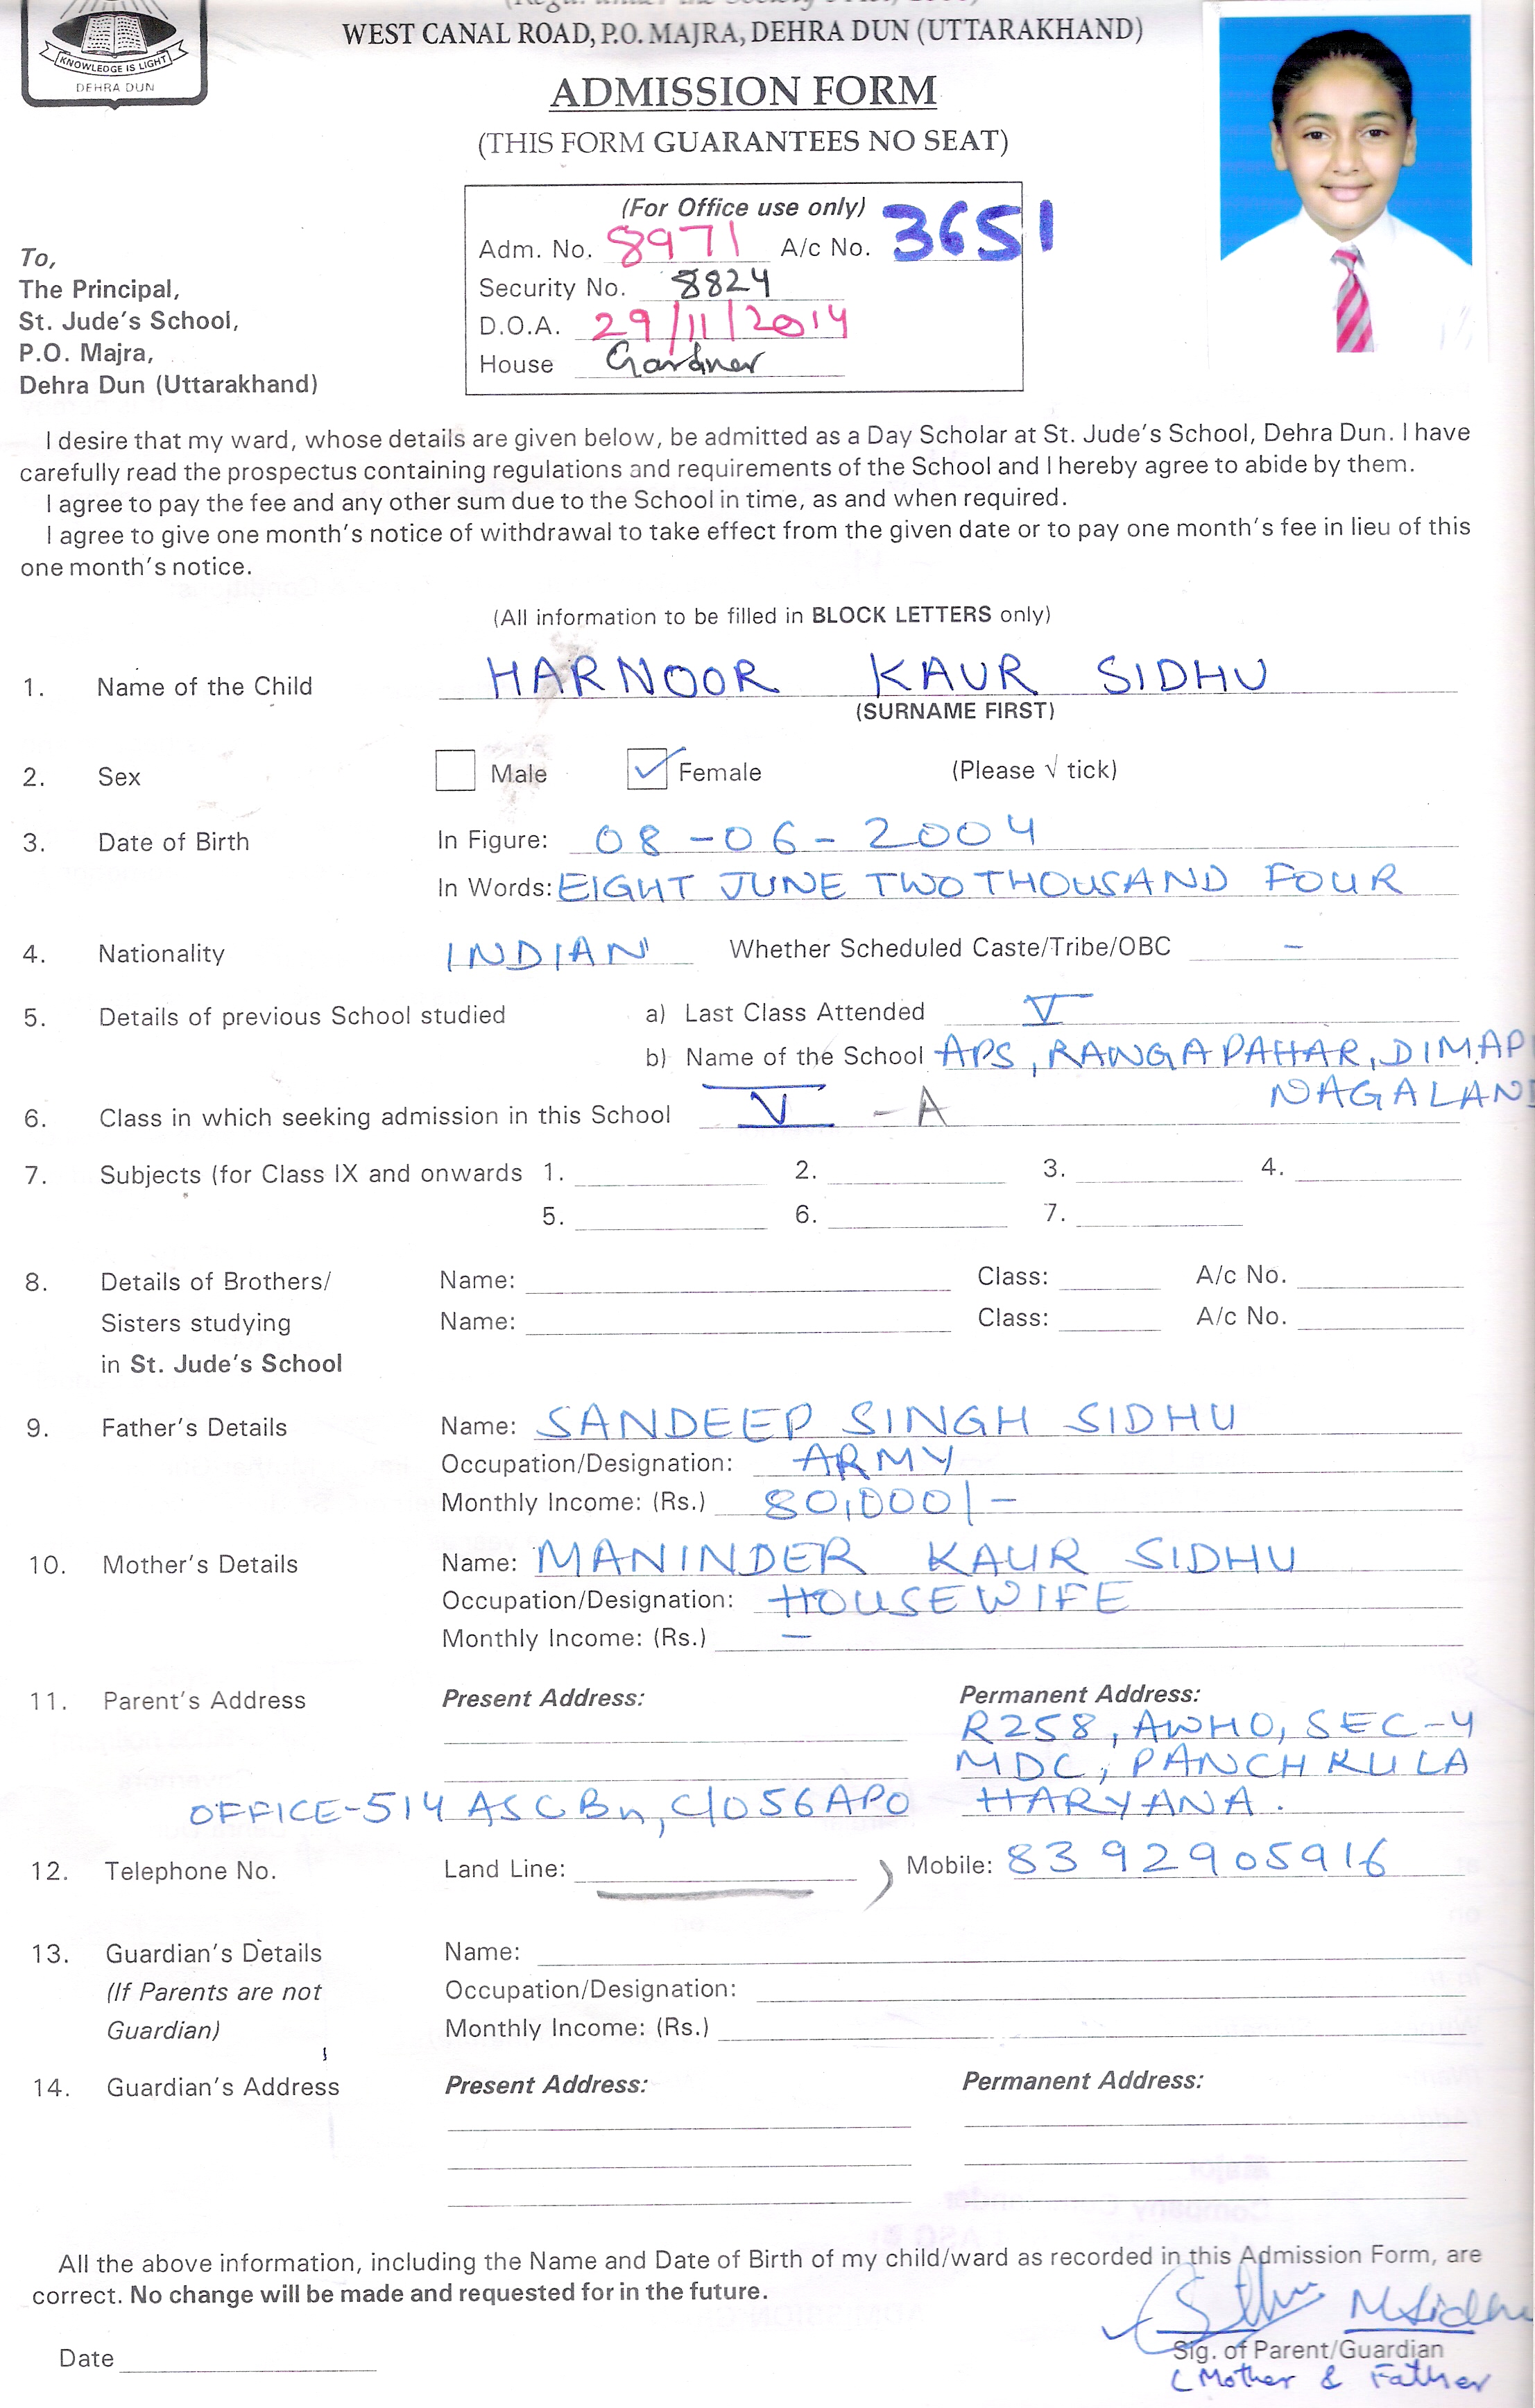 KNOWLEDGE IS LIGHT
DEHRA DUN
WEST CANAL ROAD, P.O. MAJRA, DEHRA DUN (UTTARAKHAND)
ADMISSION FORM
(THIS FORM GUARANTEES NO SEAT)
(For Office use only)
Adm. No. 8971 A/c No. 3651
Security No. 8824
D.O.A. 29/11/2014
House Gardner
To,
The Principal,
St. Jude's School,
P.O. Majra,
Dehra Dun (Uttarakhand)
I desire that my ward, whose details are given below, be admitted as a Day Scholar at St. Jude's School, Dehra Dun. I have
carefully read the prospectus containing regulations and requirements of the School and I hereby agree to abide by them.
I agree to pay the fee and any other sum due to the School in time, as and when required.
I agree to give one month's notice of withdrawal to take effect from the given date or to pay one month's fee in lieu of this
one month's notice.
(All information to be filled in BLOCK LETTERS only)
1. Name of the Child HARNOOR KAUR SIDHU
(SURNAME FIRST)
2. Sex Male ✓ Female (Please √ tick)
3. Date of Birth In Figure: 08-06-2004
In Words: EIGHT JUNE TWO THOUSAND FOUR
4. Nationality INDIAN Whether Scheduled Caste/Tribe/OBC -
5. Details of previous School studied a) Last Class Attended V
b) Name of the School APS, RANGAPAHAR, DIMAP
NAGALAND
6. Class in which seeking admission in this School V - A
7. Subjects (for Class IX and onwards 1. 2. 3. 4.
5. 6. 7.
8. Details of Brothers/ Name: Class: A/c No.
Sisters studying Name: Class: A/c No.
in St. Jude's School
9. Father's Details Name: SANDEEP SINGH SIDHU
Occupation/Designation: ARMY
Monthly Income: (Rs.) 80,000/-
10. Mother's Details Name: MANINDER KAUR SIDHU
Occupation/Designation: HOUSEWIFE
Monthly Income: (Rs.) -
11. Parent's Address Present Address: Permanent Address:
R258, AWHO, SEC-4
MDC, PANCHKULA
OFFICE-514 ASC Bn, C/O 56 APO HARYANA.
12. Telephone No. Land Line: Mobile: 8392905916
13. Guardian's Details Name:
(If Parents are not Occupation/Designation:
Guardian) Monthly Income: (Rs.)
14. Guardian's Address Present Address: Permanent Address:
All the above information, including the Name and Date of Birth of my child/ward as recorded in this Admission Form, are
correct. No change will be made and requested for in the future.
MSidhu
Date Sig. of Parent/Guardian
(Mother & Father